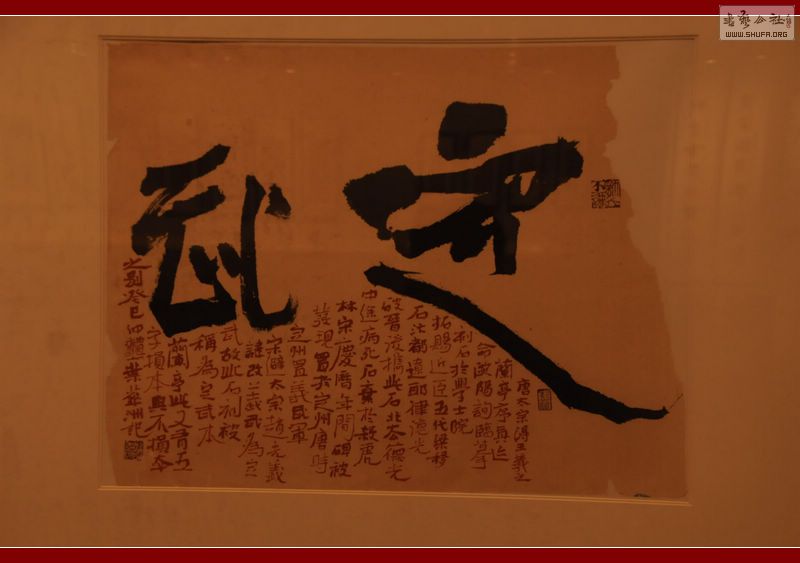 定武
唐太宗得王羲之
蘭亭序真迹
命歐陽詢臨摹
刻石於學士院
拓賜近臣五代梁移
石汴都遼耶律德光
破晉後攜此石北去德光
中途病死石棄於殺虎
林宋慶曆年間碑被
發現置於定州唐時
定州置義武軍
宋避太宗趙光義
諱改義武為定
武故此石刻被
稱為定武本
蘭亭此又有五
字損本與不損本
之別癸巳
記
WWW.SHUFA.ORG